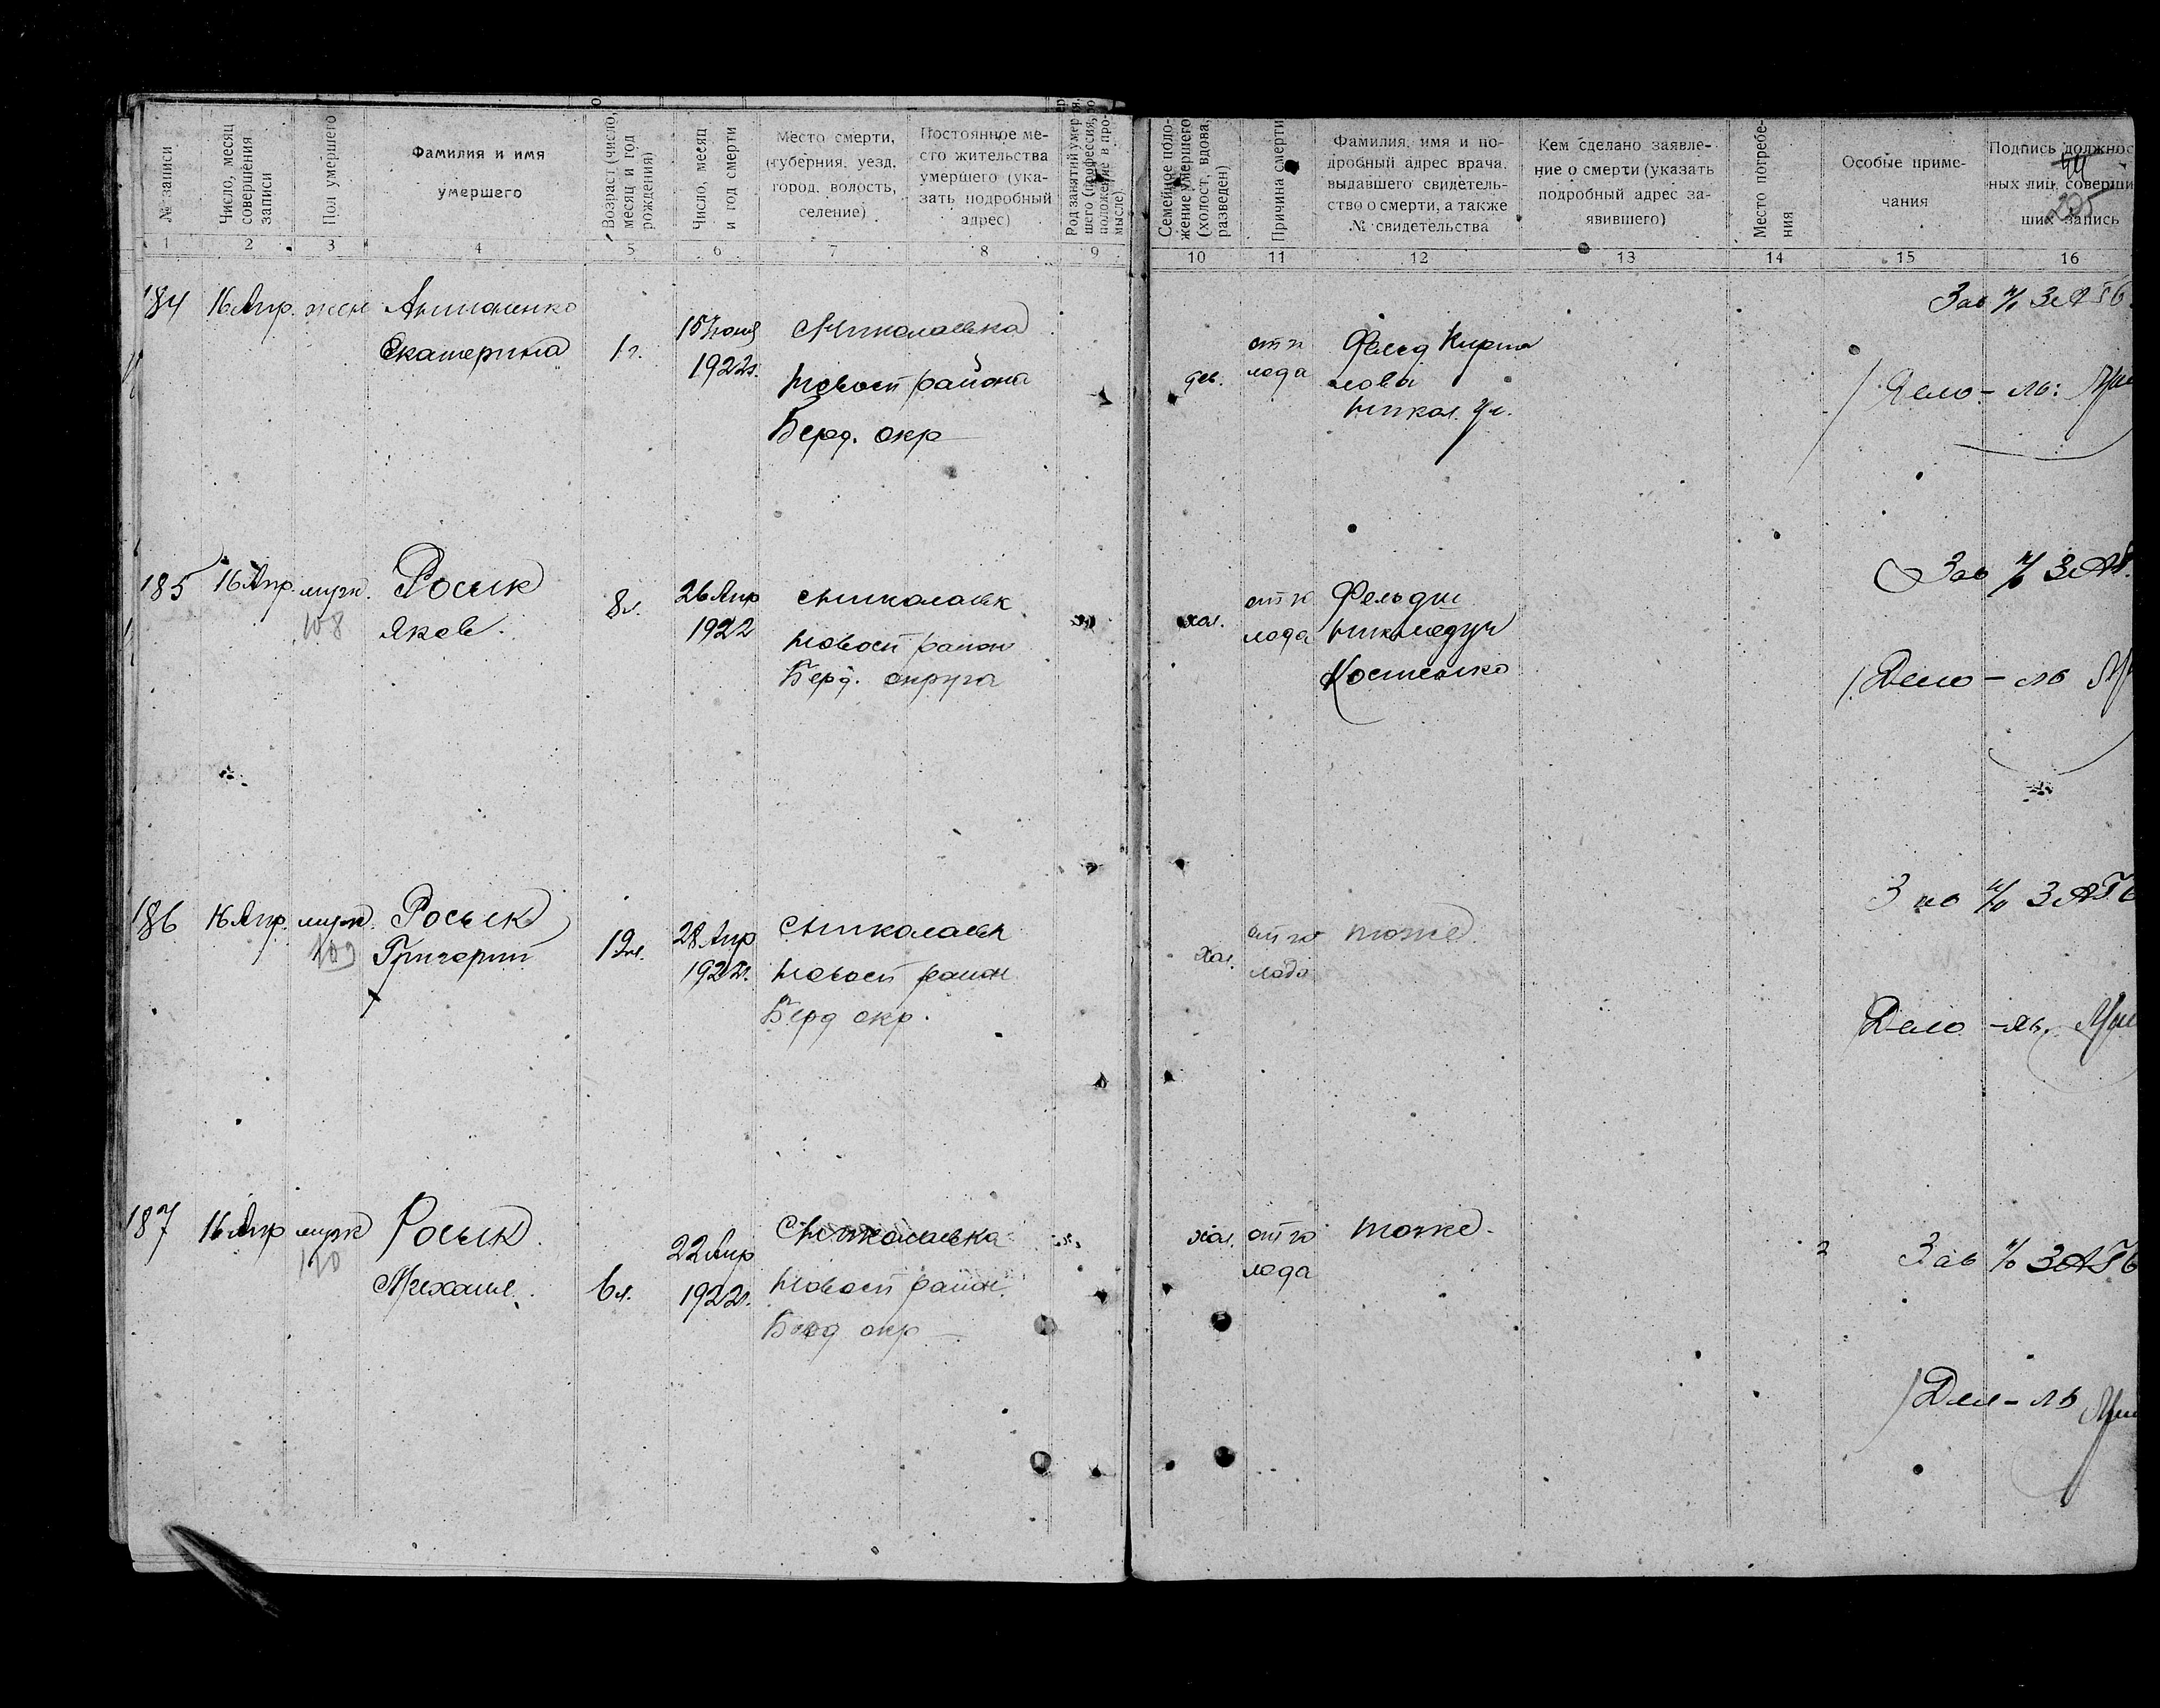 № записи
Число, месяц совершения записи
Пол умершего
Фамилия и имя
умершего
Возраст (число, месяц и год рождения)
Число, месяц и год смерти
Место смерти,
(губерния, уезд,
город, волость,
селение)
Постоянное ме-
сто жительства
умершего (ука-
зать подробный
адрес)
Род занятий умер
шего (профессия,
положение в про-
мысле)
Семейное поло-
жение умершего
(холост, вдова,
разведен)
Причина смерти
Фамилия, имя и по-
дробный адрес врача,
выдавшего свидетель-
ство о смерти, а также
№ свидетельства
Кем сделано заявле-
ние о смерти (указать
подробный адрес за-
явившего)
Место погребе-
ния
Особые приме-
чания
Подпись должнос
ных лиц, соверши
ших запись
1 2 3 4 5 6 7 8 9 10 11 12 13 14 15 16
184 16 Апр. жен
Екатерина 1 г.
15 Июня
1922г.
Николаевка
Новосп района
Берд. окр
дев.
от го
лода
Фельд Кирил
лова
Никол. Ул.
Зав п/о ЗАГС
Дело-ль:
185 16 Апр. муж.
108
Росик
Яков.
8л.
26 Апр
1922
Николаевк
Новосп район
Берд. округа
хол.
от го
лода
Фельдш
Костенко
Зав п/о ЗАГ
Дело-ль
186 16 Апр. муж.
109
Росик
Григорий
12л.
28 Апр
1922г.
Николаевк
Новосп район
Берд окр.
хол.
от го
лода
тоже
Зав п/о ЗАГС
Дело-ль.
187 16 Апр муж
110
Росик
Михаил.
6л.
22 Апр
1922г.
Николаевка
Новосп район.
Берд окр
хол.
от го
лода
тоже.
Зав п/о ЗАГС
Дел-ль